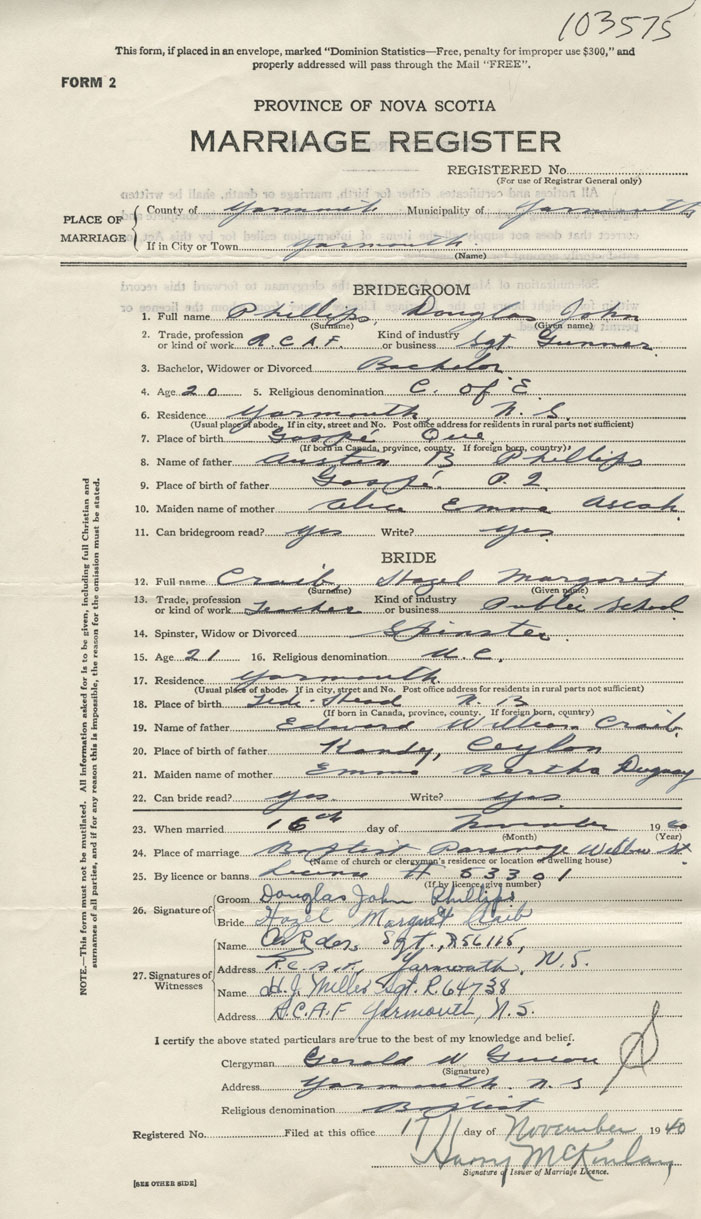 103575
This form, if placed in an envelope, marked "Dominion Statistics—Free, penalty for improper use $300," and
properly addressed will pass through the Mail "FREE".
FORM 2
PROVINCE OF NOVA SCOTIA
MARRIAGE REGISTER
REGISTERED No.
(For use of Registrar General only)
PLACE OF MARRIAGE
County of Yarmouth Municipality of Yarmouth
If in City or Town Yarmouth
(Name)
BRIDEGROOM
1. Full name Phillips, Douglas John
(Surname) (Given name)
2. Trade, profession or kind of work R.C.A.F. Kind of industry or business Sgt Gunner
3. Bachelor, Widower or Divorced Bachelor
4. Age 20 5. Religious denomination C. of E.
6. Residence Yarmouth N.S.
(Usual place of abode. If in city, street and No. Post office address for residents in rural parts not sufficient)
7. Place of birth Gaspé Que
(If born in Canada, province, county. If foreign born, country)
8. Name of father Austen B Phillips
9. Place of birth of father Gaspé P.Q.
10. Maiden name of mother Alice Emma Ascah
11. Can bridegroom read? yes Write? yes
BRIDE
12. Full name Craib, Hazel Margaret
(Surname) (Given name)
13. Trade, profession or kind of work Teacher Kind of industry or business Public School
14. Spinster, Widow or Divorced Spinster
15. Age 21 16. Religious denomination U.C.
17. Residence Yarmouth
(Usual place of abode. If in city, street and No. Post office address for residents in rural parts not sufficient)
18. Place of birth Head N.B
(If born in Canada, province, county. If foreign born, country)
19. Name of father Edward William Craib
20. Place of birth of father Kandy, Ceylon
21. Maiden name of mother Emma Bertha Duguay
22. Can bride read? yes Write? yes
23. When married 16th day of November 1940
(Month) (Year)
24. Place of marriage Baptist Parsonage Wilbur St
(Name of church or clergyman's residence or location of dwelling house)
25. By licence or banns Licence # 53301
(If by licence, give number)
26. Signature of
Groom Douglas John Phillips
Bride Hazel Margaret Craib
27. Signatures of Witnesses
Name Sgt., R56115,
Address R.C.A.F., Yarmouth, N.S.
Name H.J. Miller Sgt. R.64738
Address R.C.A.F Yarmouth, N.S.
I certify the above stated particulars are true to the best of my knowledge and belief.
Clergyman Gerald W
(Signature)
Address Yarmouth N.S
Religious denomination Baptist
Registered No. Filed at this office 17 day of November 1940
Harry McKinlay
Signature of Issuer of Marriage Licence.
[SEE OTHER SIDE]
NOTE.—This form must not be mutilated. All information asked for is to be given, including full Christian and
surnames of all parties, and if for any reason this is impossible, the reason for the omission must be stated.